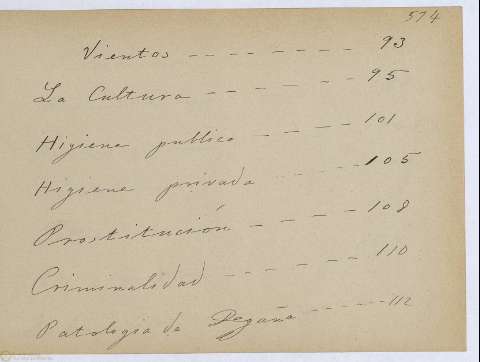 574
Vientos -------- 93
La Cultura ------ 95
Higiene publica ---- 101
Higiene privada ---- 105
Prostitución ---- 108
Criminalidad ----- 110
Patología de Degaña ----- 112